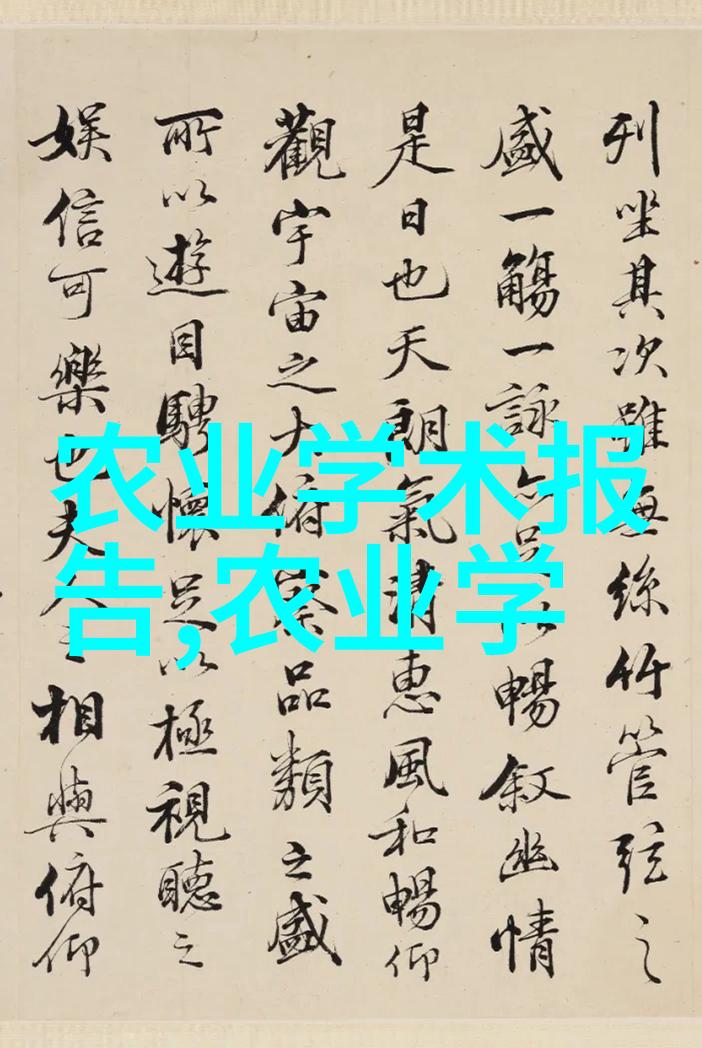 列坐其次雖無絲竹管弦之
盛一觴一詠亦足以暢叙幽情
是日也天朗氣清惠風和暢仰
觀宇宙之大俯察品類之盛
所以遊目騁懷足以極視聽之
娱信可樂也夫人之相與俯仰
农业学术报
告,农业学